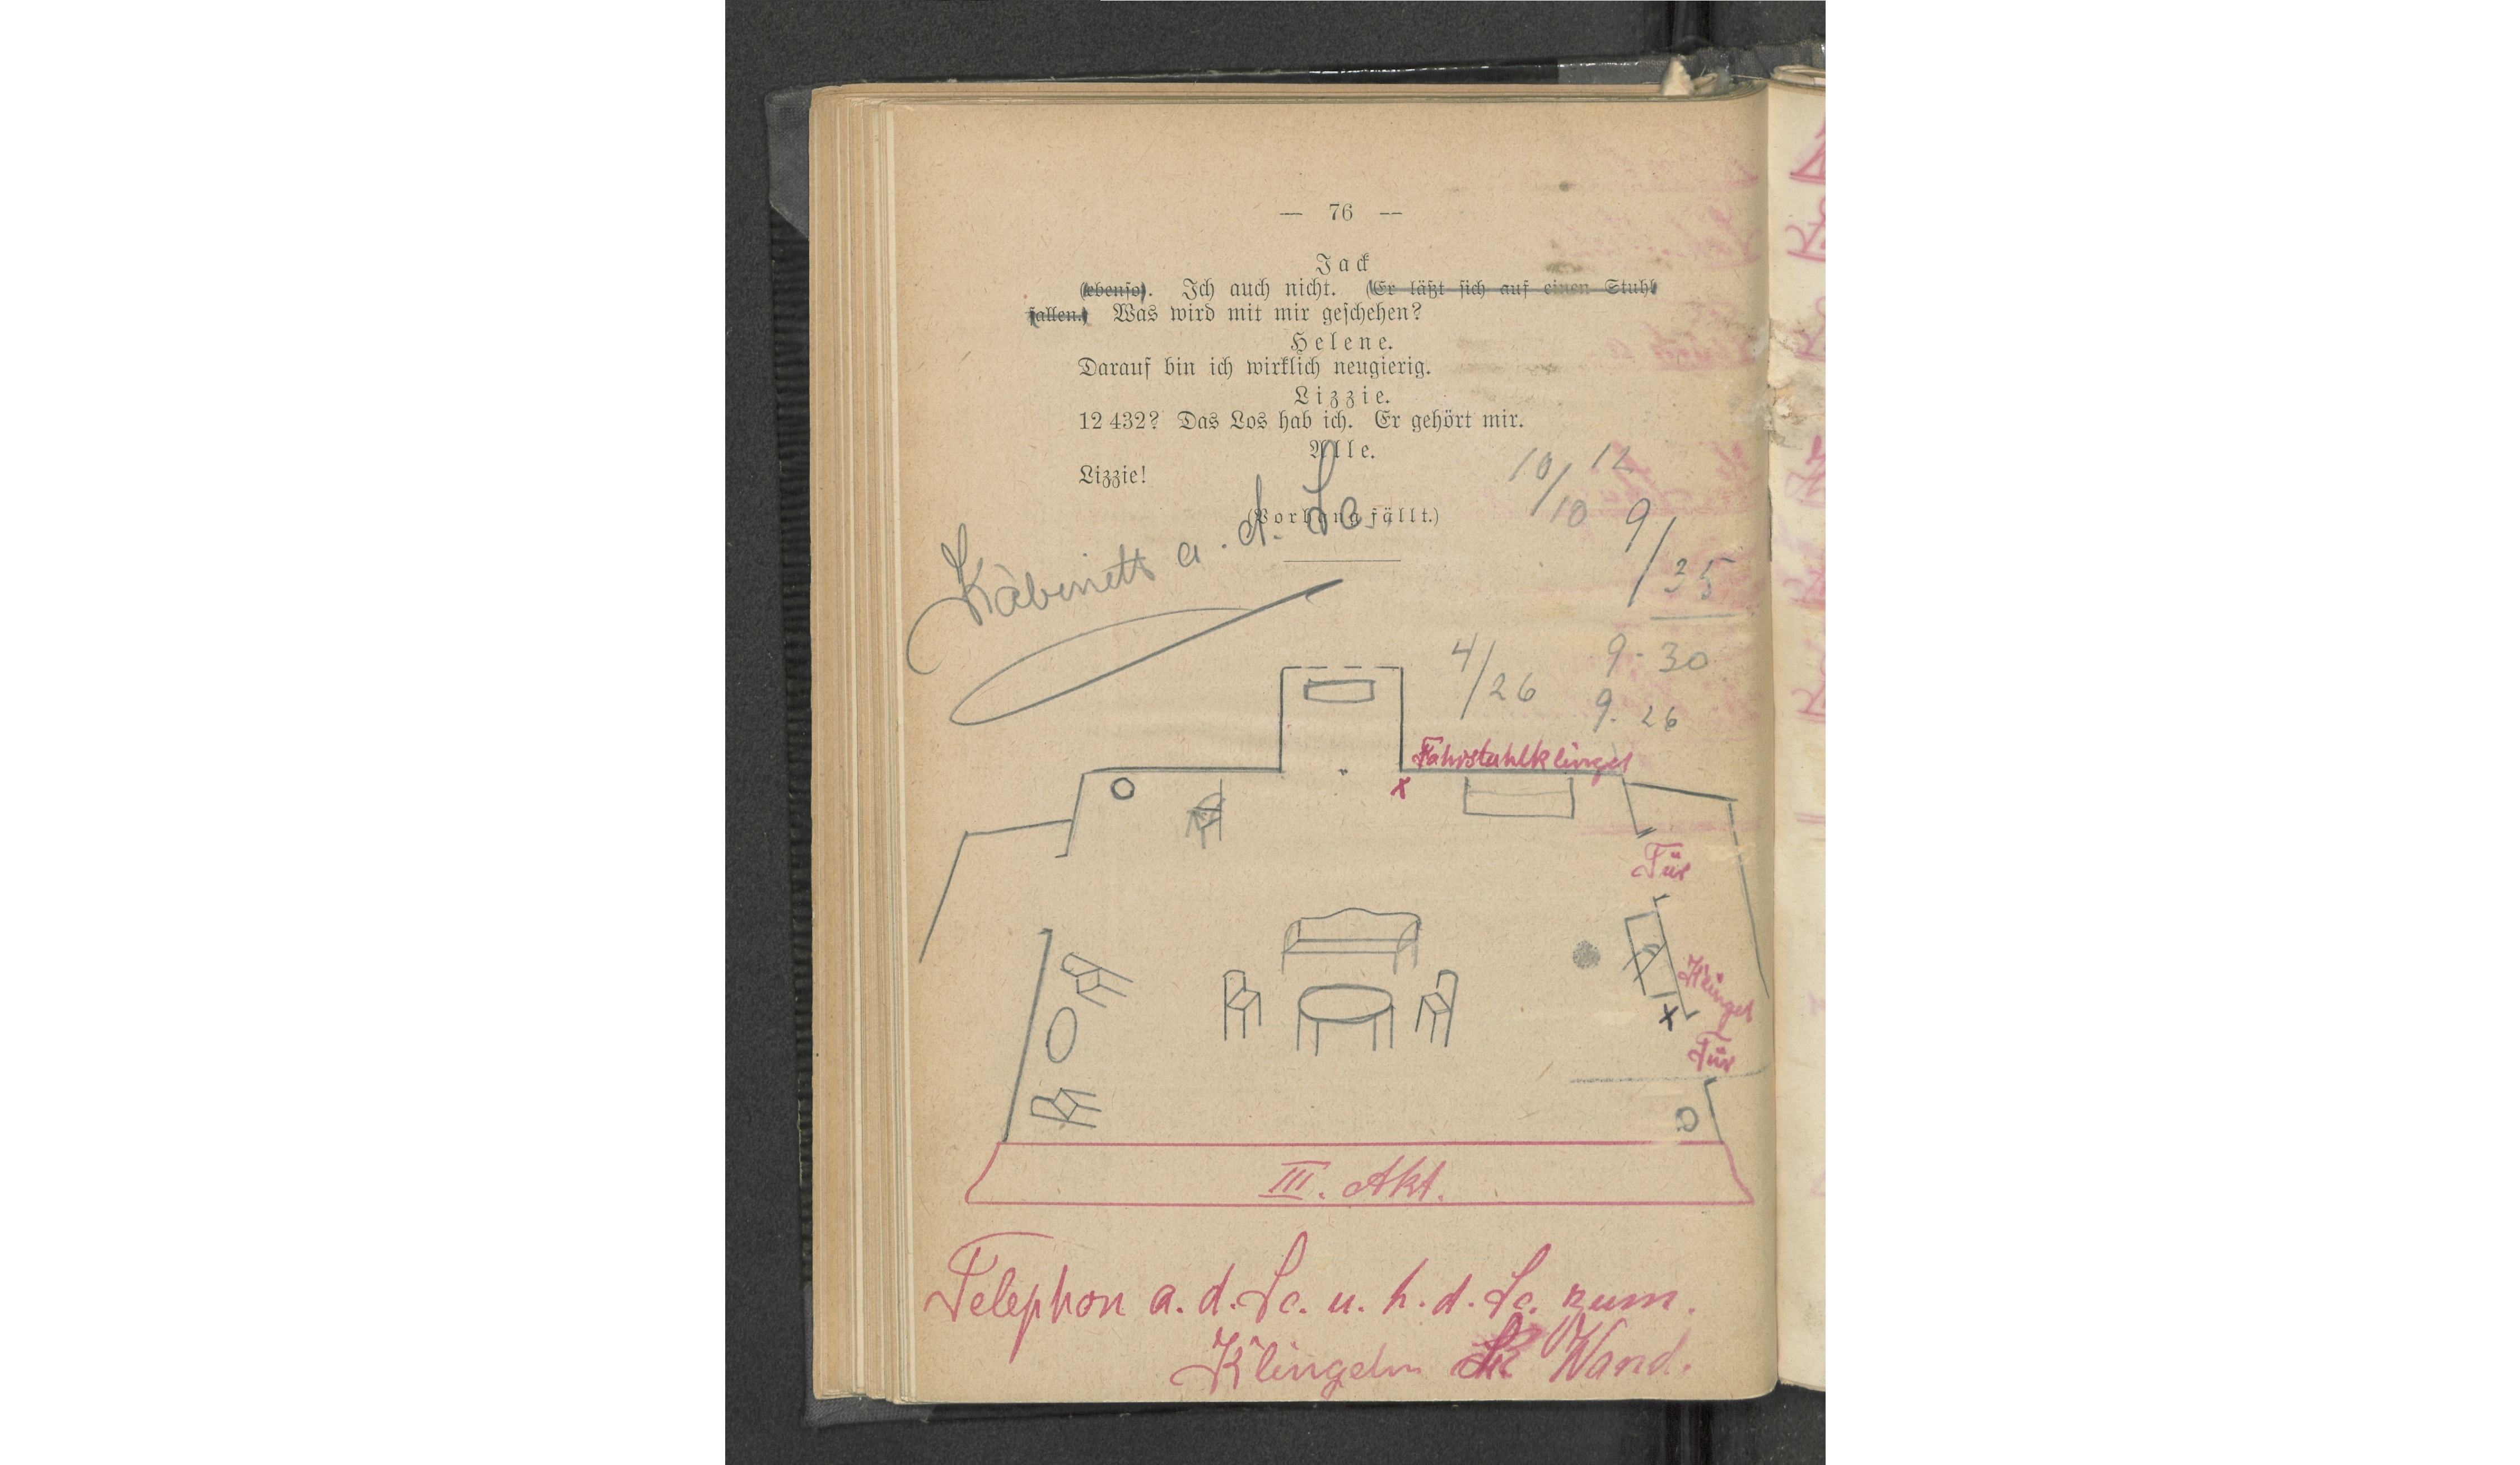 — 76 —
Jack
(ebenso). Ich auch nicht. (Er läßt sich auf einen Stuhl
fallen.) Was wird mit mir geschehen?
Helene.
Darauf bin ich wirklich neugierig.
Lizzie.
12 432? Das Los hab ich. Er gehört mir.
Alle.
Lizzie!
(Vorhang fällt.)
Kabinett a. d. Sc.
10/10 12
9/35
9. 30
4/26
9. 26
Fahrstuhlklingel
x
Tür
Klingel
x
Tür
III. Akt.
Telephon a. d. Sc. u. h. d. Sc. zum.
Klingeln Wand.